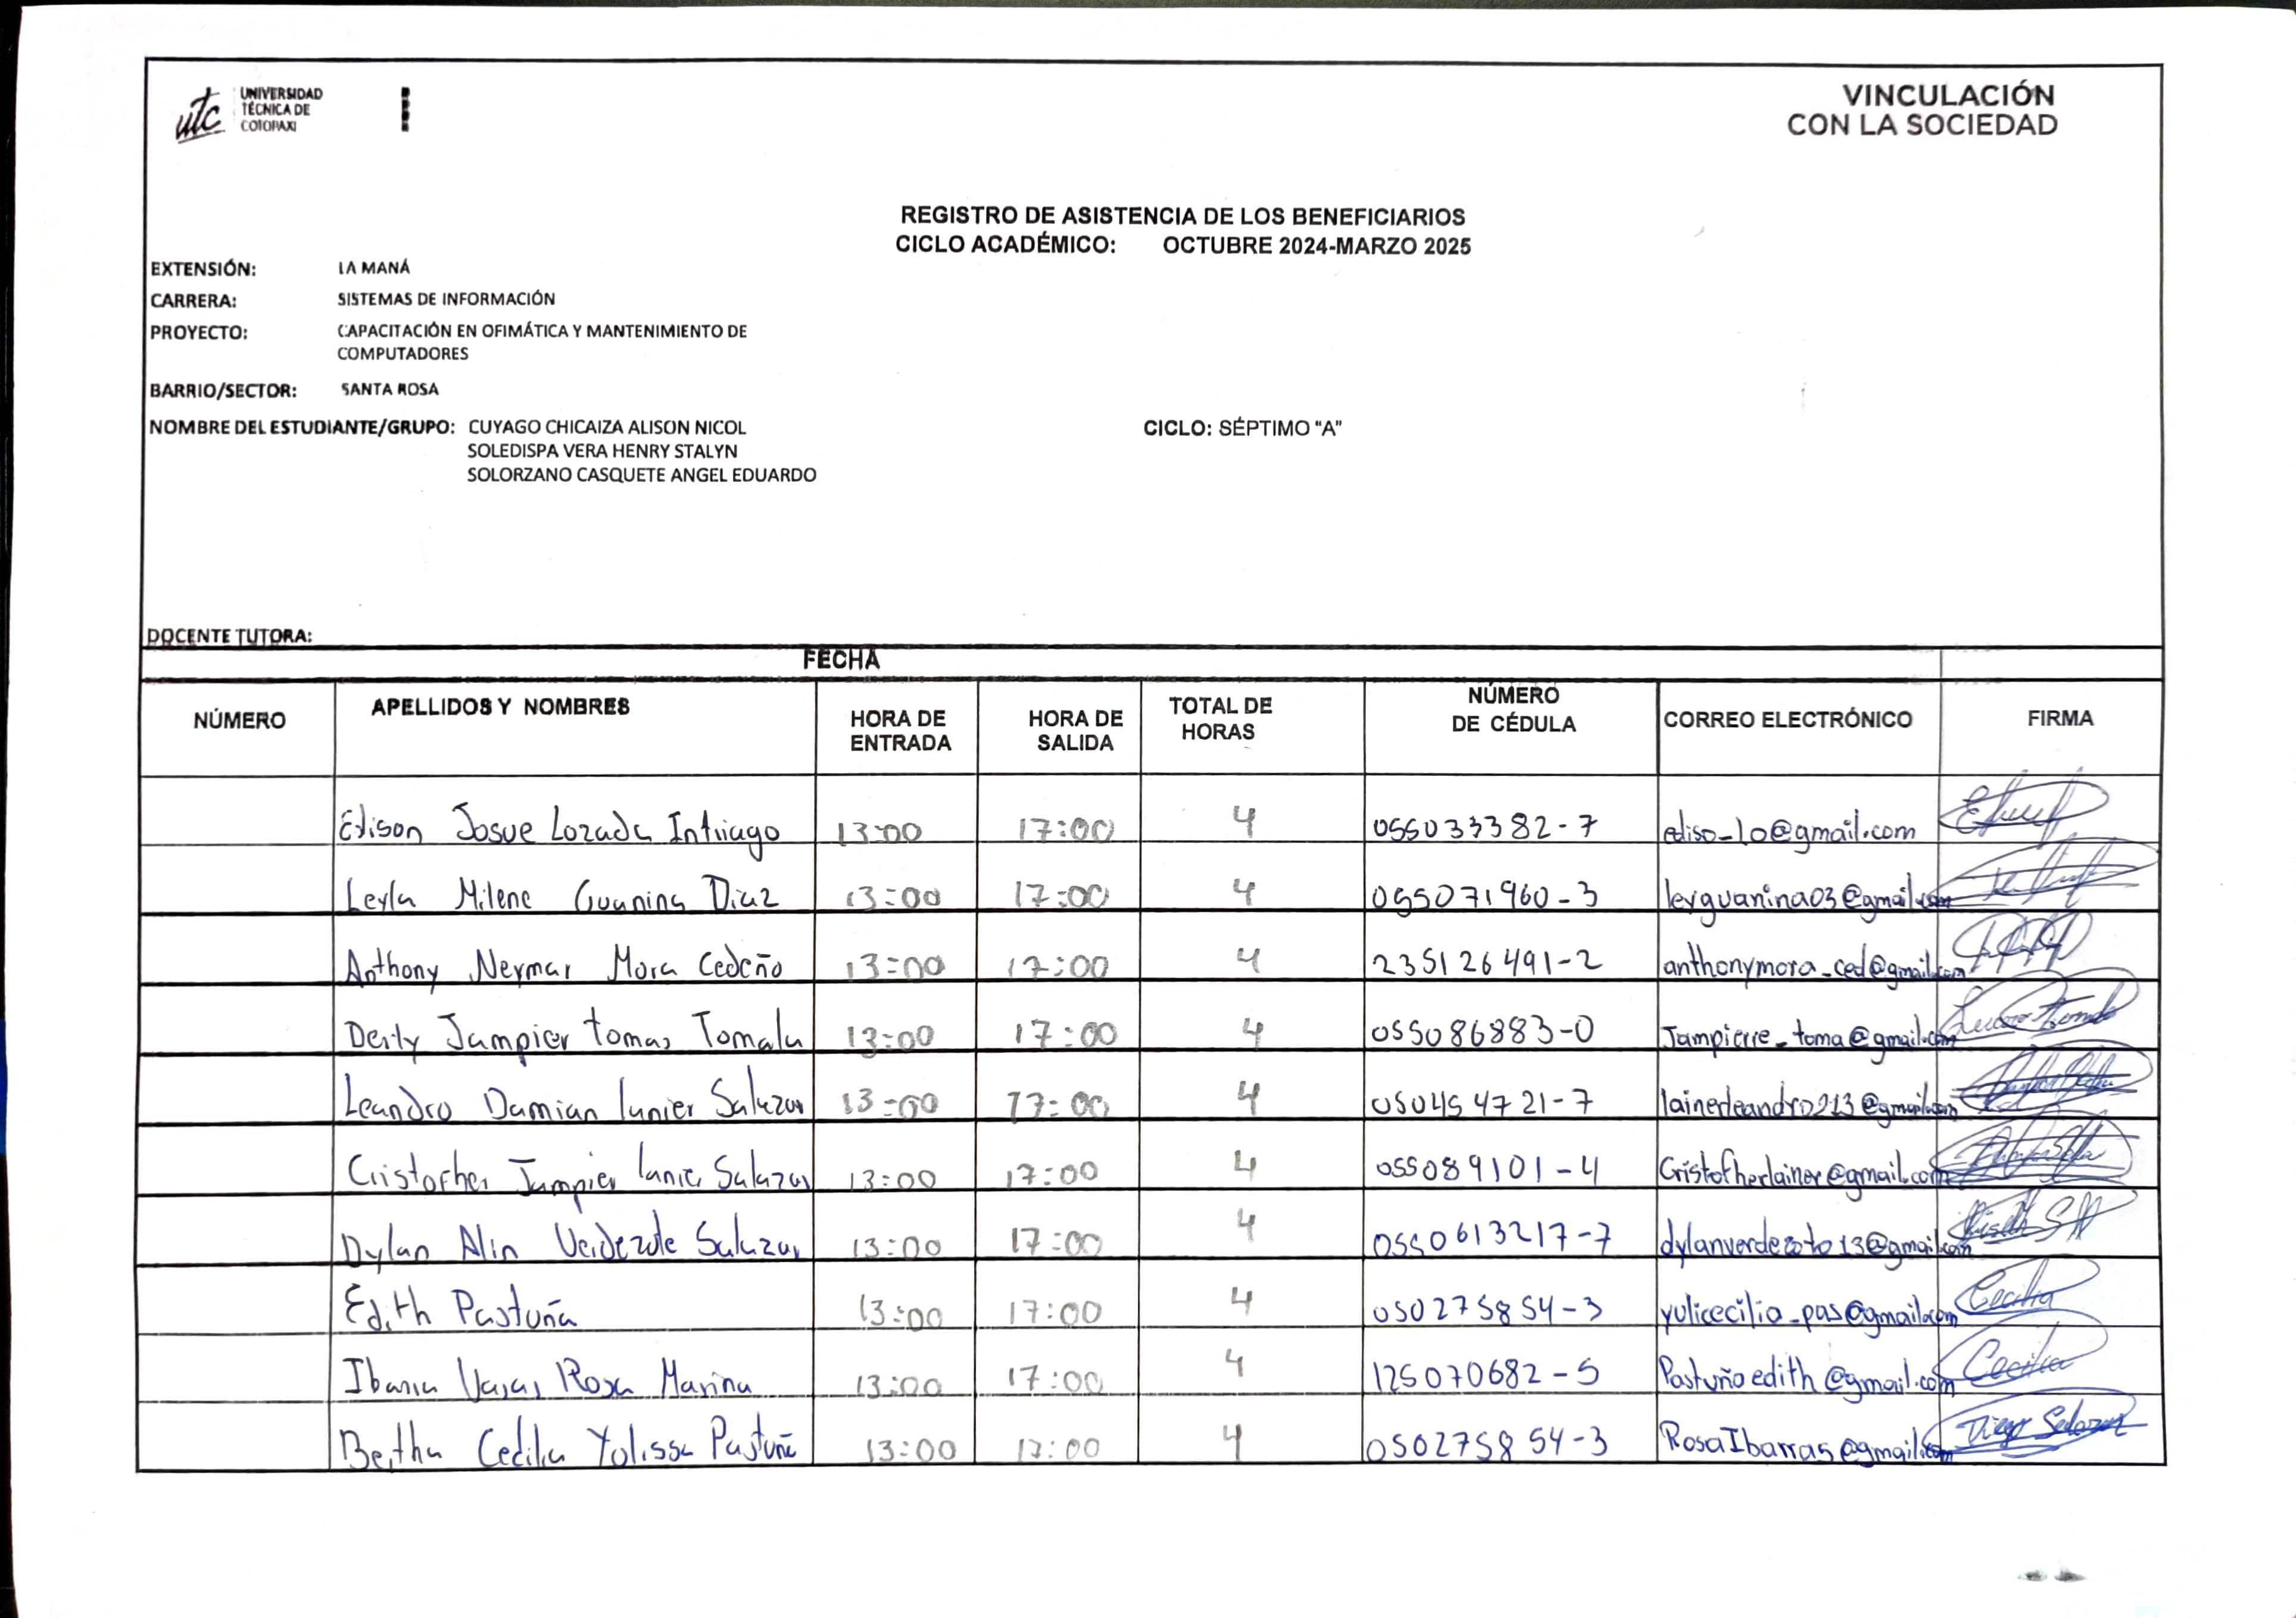 utc UNIVERSIDAD
TÉCNICA DE
COTOPAXI
VINCULACIÓN
CON LA SOCIEDAD
REGISTRO DE ASISTENCIA DE LOS BENEFICIARIOS
CICLO ACADÉMICO: OCTUBRE 2024-MARZO 2025
EXTENSIÓN: LA MANÁ
CARRERA: SISTEMAS DE INFORMACIÓN
PROYECTO: CAPACITACIÓN EN OFIMÁTICA Y MANTENIMIENTO DE
COMPUTADORES
BARRIO/SECTOR: SANTA ROSA
NOMBRE DEL ESTUDIANTE/GRUPO: CUYAGO CHICAIZA ALISON NICOL CICLO: SÉPTIMO "A"
SOLEDISPA VERA HENRY STALYN
SOLORZANO CASQUETE ANGEL EDUARDO
DOCENTE TUTORA:
FECHA
NÚMERO APELLIDOS Y NOMBRES HORA DE ENTRADA HORA DE SALIDA TOTAL DE HORAS NÚMERO DE CÉDULA CORREO ELECTRÓNICO FIRMA
Edison Josue Lozada Intriago 13:00 17:00 4 055033382-7 ediso-lo@gmail.com
Leyla Milene Guanina Diaz 13:00 17:00 4 055071960-3 leyguanina03@gmail.com
Anthony Neymar Mora Cedeño 13:00 17:00 4 235126491-2 anthonymora_ced@gmail.com
Deily Jampier tomas Tomala 13:00 17:00 4 055086883-0 Jampierre_toma@gmail.com
Leandro Damian lanier Salazar 13:00 17:00 4 050454721-7 lainerleandro213@gmail.com
Cristofher Jampier lanier Salazar 13:00 17:00 4 055089101-4 Cristofherlainer@gmail.com
Dylan Alin Verdezote Salazar 13:00 17:00 4 0550613217-7 dylanverdezoto13@gmail.com
Edith Pastuña 13:00 17:00 4 050275854-3 yulicecilia_pas@gmail.com Cecilia
Ibarra Vargas Rosa Marina 13:00 17:00 4 125070682-5 Pastuñoedith@gmail.com Cecilia
Bertha Cecilia Yolissa Pastuña 13:00 17:00 4 050275854-3 RosaIbarras@gmail.com Diego Salazar